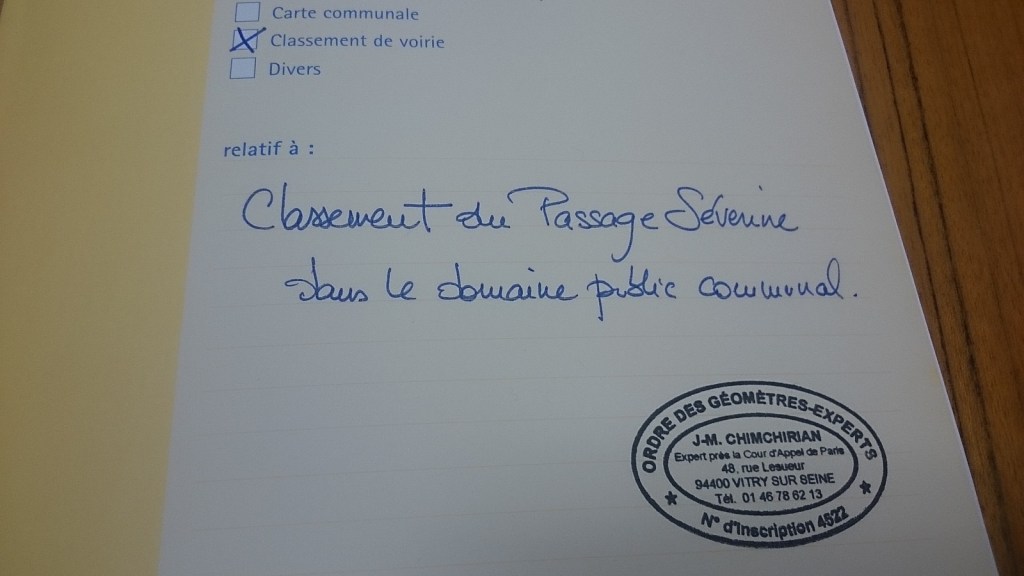 Carte communale
Classement de voirie
Divers
relatif à :
Classement du Passage Séverine
dans le domaine public communal.
ORDRE DES GÉOMÈTRES-EXPERTS
J-M. CHIMCHIRIAN
Expert près la Cour d'Appel de Paris
48, rue Lesueur
94400 VITRY SUR SEINE
Tél. 01 46 78 62 13
N° d'Inscription 4522